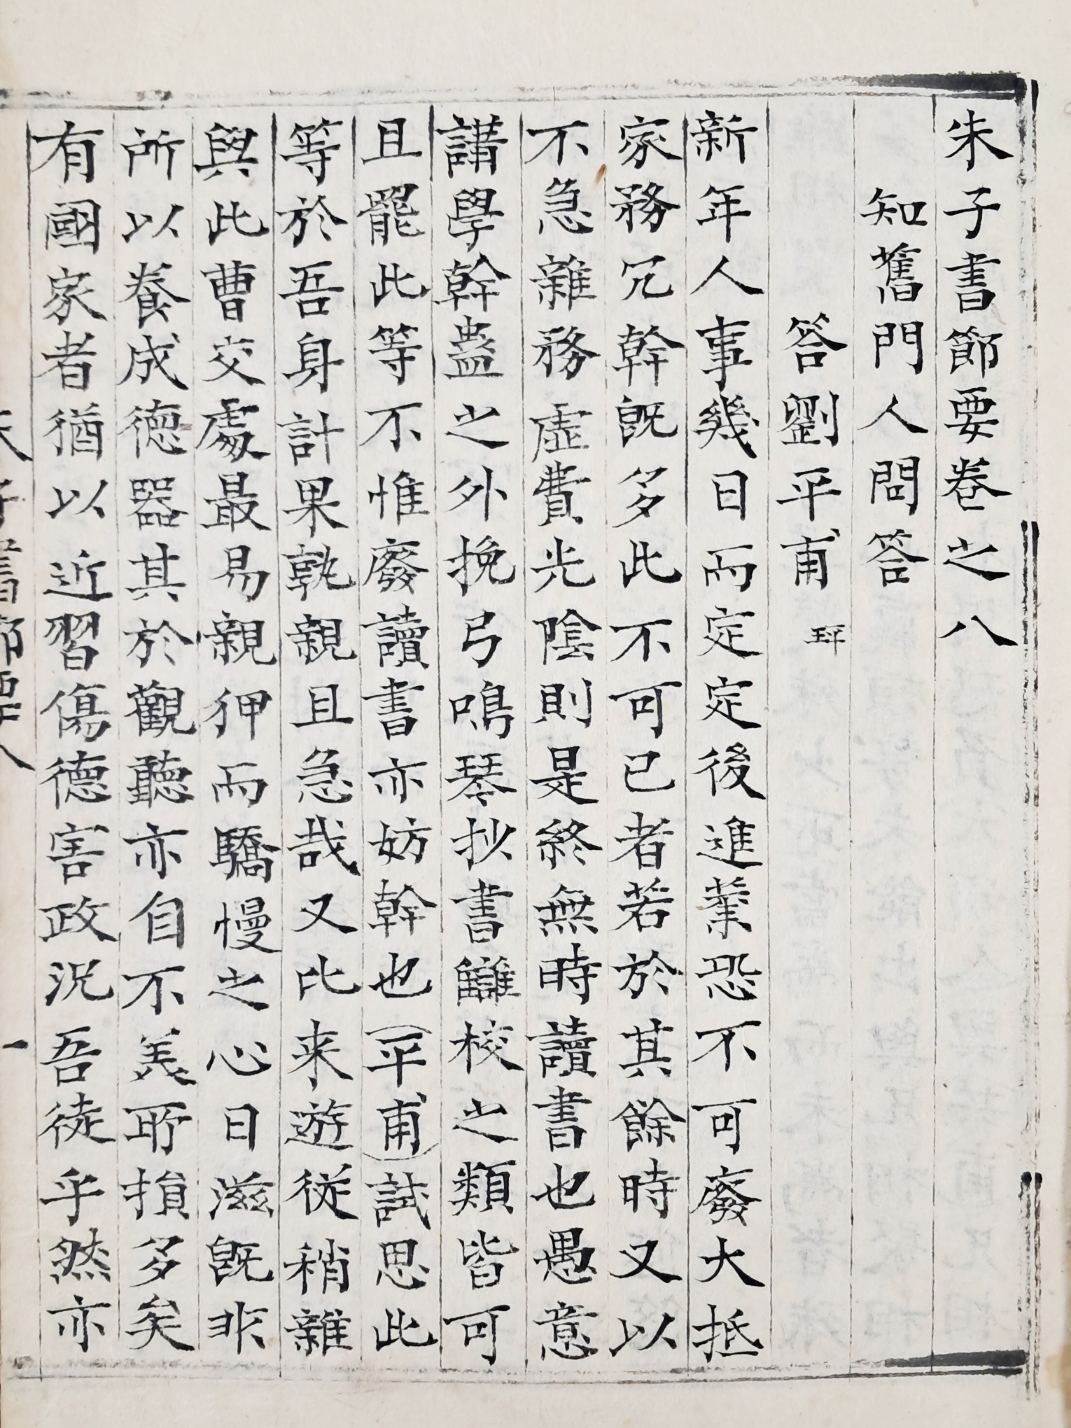 朱子書節要卷之八
知舊門人問答
答劉平甫 玶
新年人事幾日而定定後進業恐不可廢大抵
家務冗幹既多此不可已者若於其餘時又以
不急雜務虛費光陰則是終無時讀書也愚意
講學幹蠱之外挽弓鳴琴抄書讎校之類皆可
且罷此等不惟廢讀書亦妨幹也平甫試思此
等於吾身計果孰親且急哉又比来遊従稍雜
與此曹交處最易親狎而驕慢之心日滋既非
所以養成德器其於觀聽亦自不美所損多矣
有國家者猶以近習傷德害政況吾徒乎然亦
朱子書節要八
一